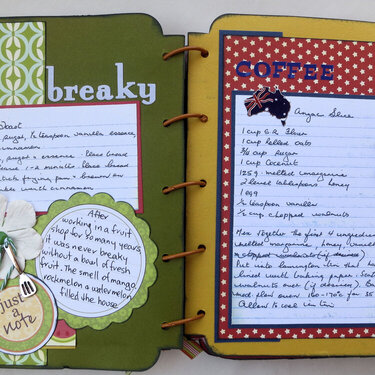 breaky
Toast
sugar, ½ teaspoon vanilla essence,
cinnamon
sugar + essence. Place bread
1-2 minutes. Place bread
frying pan + brown on
with cinnamon
After
working in a fruit
shop for so many years
it was never breaky
without a bowl of fresh
fruit. The smell of mango,
rockmelon & watermelon
filled the house
just a
note
COFFEE
Anzac Slice
1 cup S.R. Flour
1 cup Rolled oats
¾ cup sugar
1 cup Coconut
125g melted margarine
2 level tablespoons honey
1 egg
½ teaspoon vanilla
½ cup chopped walnuts
Mix Together the first 4 ingredients
melted margarine, honey, vanilla
Put into lamington tin that has
lined with baking paper. Scatter
walnuts over (if desired). Bake
mod. oven 160-170°c for 35
Allow to cool in tin